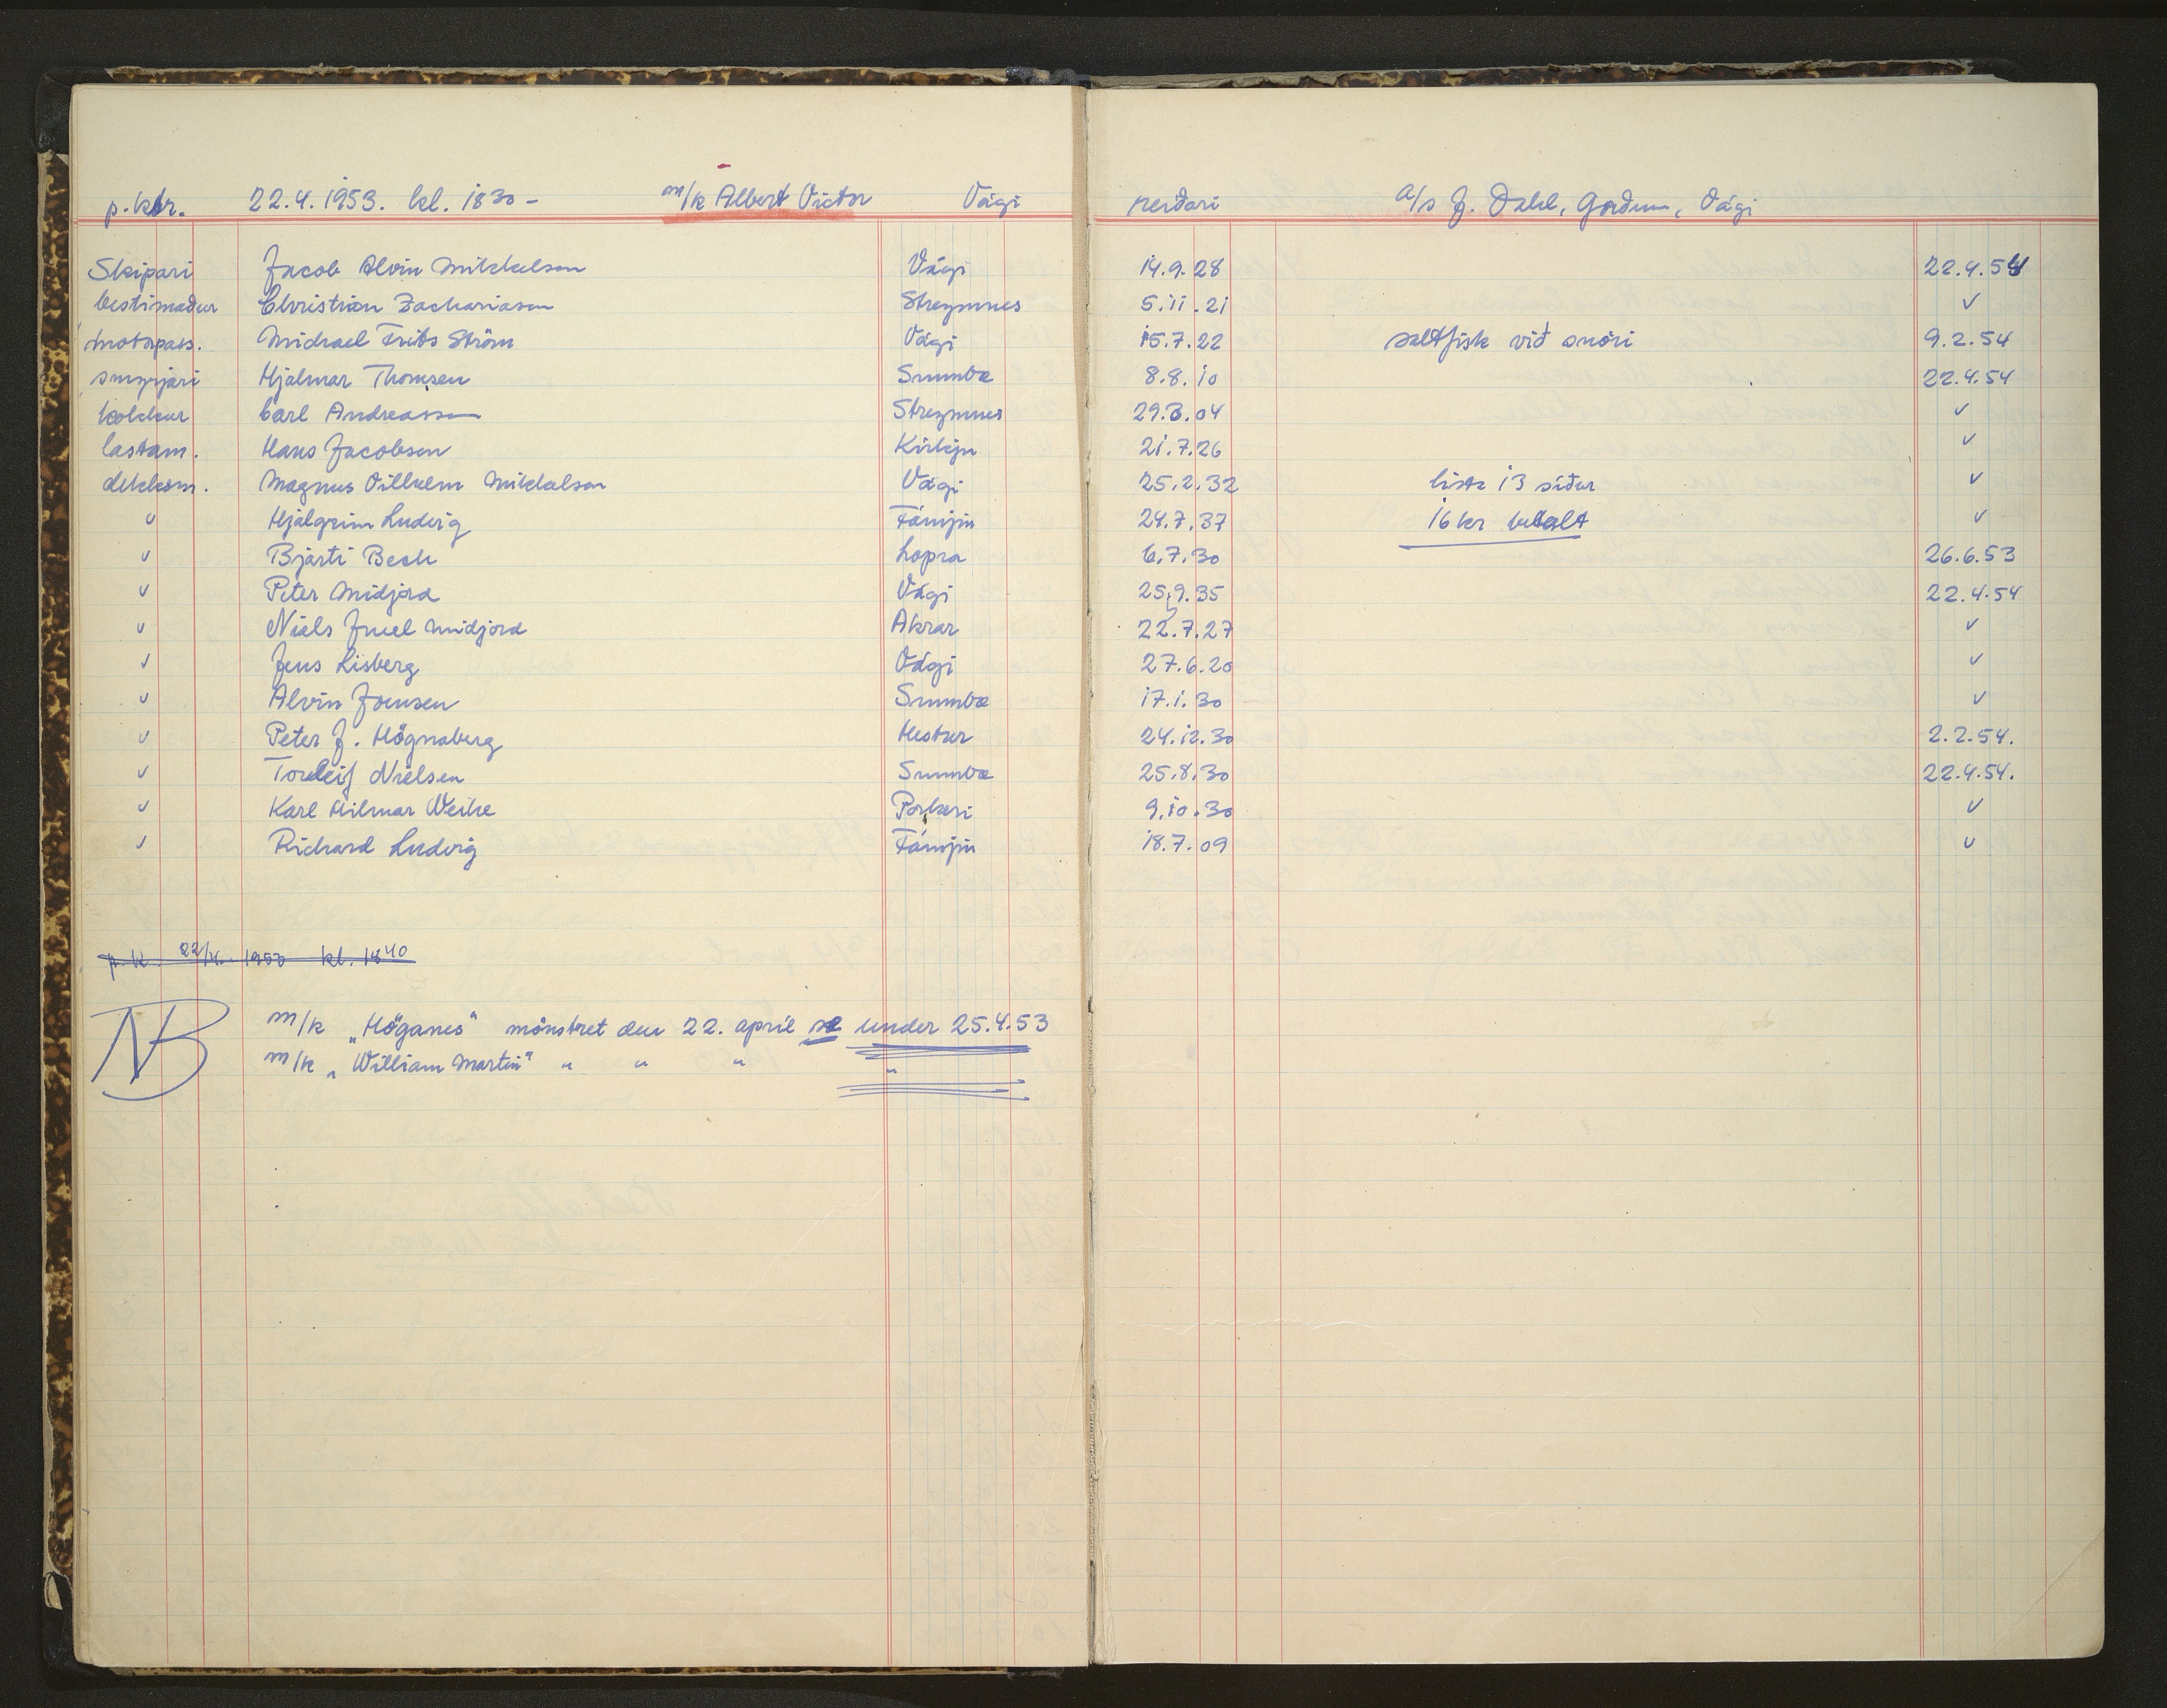 p. ktr. 22.4.1953. kl. 18 30 - m/k Albert Victor Vági reiðari a/s J. Dahl, Gørðum, Vági
Skipari Jacob Alvin Mikkelsen Vági 14.9.28 22.4.54
bestimaður Christian Zachariasen Streymnes 5.11.21 v
motorpass. Michael Frits Ström Vági 15.7.22 saltfisk við snöri 9.2.54
smyrjari Hjalmar Thomsen Sumba 8.8.10 22.4.54
kokkur Carl Andreassen Streymnes 29.3.04 v
lastam. Hans Jacobsen Kirkju 21.7.26 v
dekksm. Magnus Vilhelm Mikkelsen Vági 25.2.32 lista 13 síður v
v Hjálgrim Ludvig Fámjin 24.7.37 16 kr betalt v
v Bjarti Bech Lopra 6.7.30 26.6.53
v Peter Midjord Vági 25.9.35 22.4.54
v Niels Juel Midjord Akrar 22.7.27 v
v Jens Lisberg Vági 27.6.20 v
v Alvin Joensen Sumba 17.1.30 v
v Peter J. Högnaberg Hestur 24.12.30 2.2.54.
v Torleif Nielsen Sumba 25.8.30 22.4.54.
v Karl Hilmar Weihe Porkeri 9.10.30 v
v Richard Ludvig Fámjin 18.7.09 v
p. k. 22/4. 1953 kl. 18 40
NB m/k „Höganes" mönstret den 22. april se under 25.4.53
m/k „William Martin" " " " "